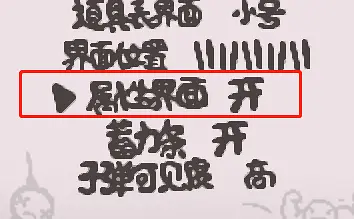 道具表界面 小号
界面位置 ||||||||||
属性界面 开
蓄力条 开
子弹可见度 高